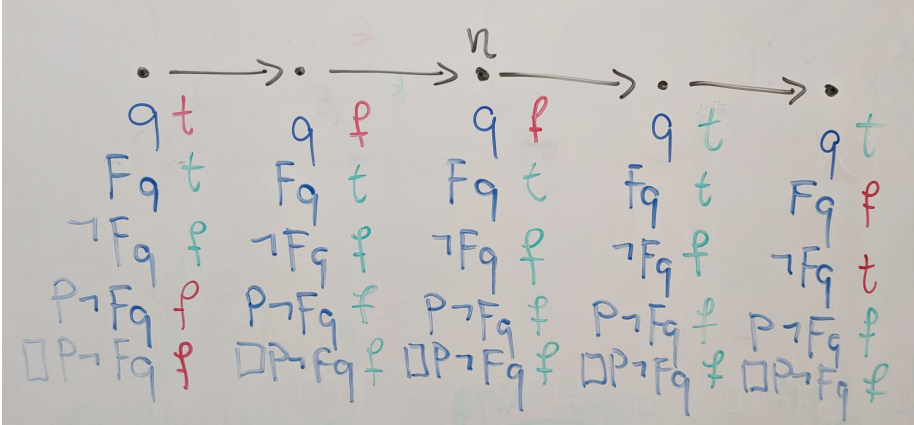 n
q t q f q f q t q t
Fq t Fq t Fq t Fq t Fq f
¬Fq f ¬Fq f ¬Fq f ¬Fq f ¬Fq t
P¬Fq f P¬Fq f P¬Fq f P¬Fq f P¬Fq f
□P¬Fq f □P¬Fq f □P¬Fq f □P¬Fq f □P¬Fq f